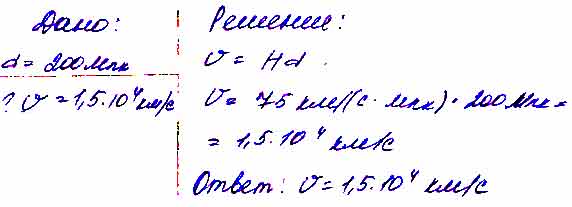 Дано:
d = 200 Мпк
? v = 1,5·10⁴ км/с
Решение:
v = Hd.
v = 75 км/(с·Мпк)·200Мпк =
= 1,5·10⁴ км/с
Ответ: v = 1,5·10⁴ км/с